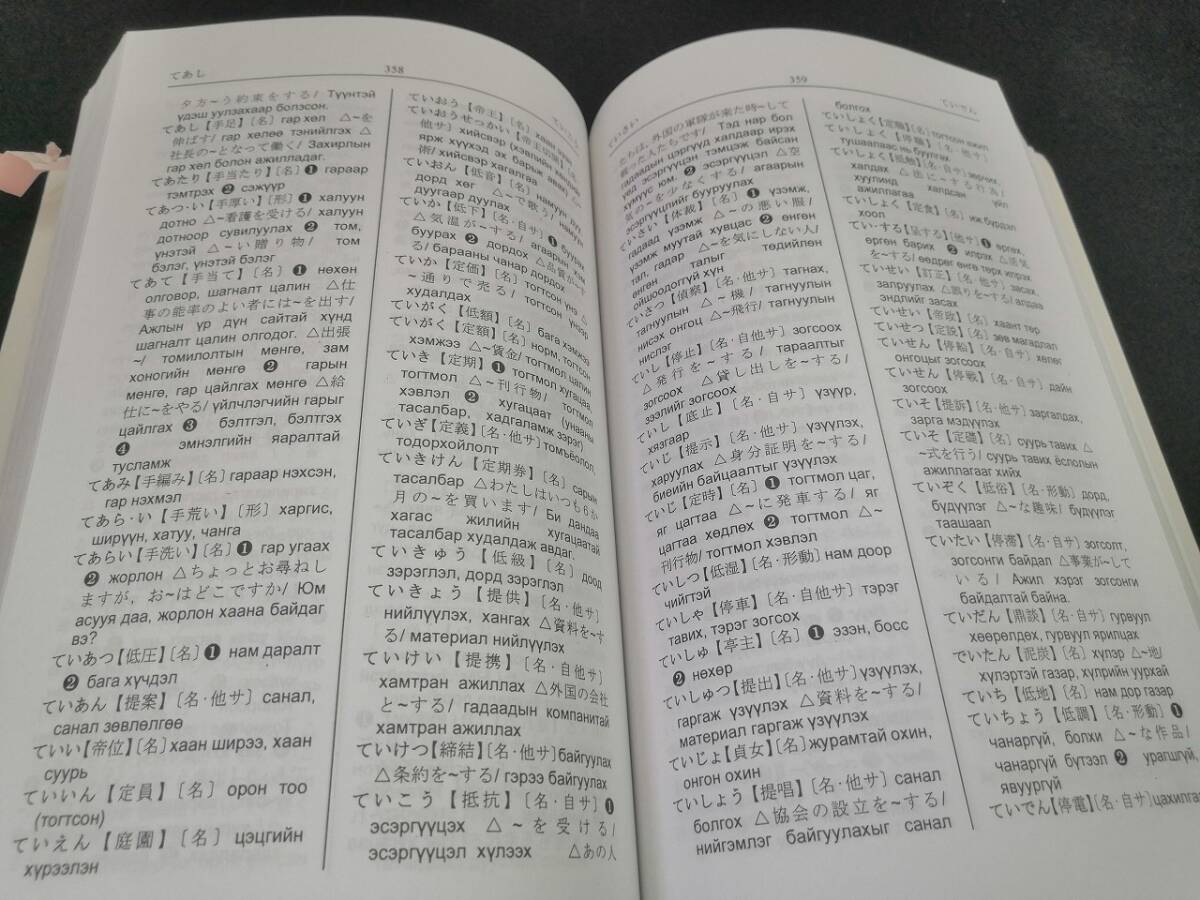 てあし
358
夕方~う約束をする/ Түүнтэй
үдэш уулзахаар болэсон.
てあし【手足】〔名〕гар хөл △~を
伸ばす/ гар хөлөө тэнийлгэх △
社長の~となって働く/ Захирлын
гар хөл болон ажилладаг.
てあたり【手当たり】〔名〕❶ гараар
тэмтрэх ❷ сэжүүр
てあつ·い【手厚い】〔形〕халуун
дотно △~看護を受ける/ халуун
дотноор сувилуулах ❷ том,
үнэтэй △~い贈り物/ том
бэлэг, үнэтэй бэлэг
てあて【手当て】〔名〕❶ нөхөн
олговор, шагналт цалин △仕
事の能率のよい者には~を出す/
Ажлын үр дүн сайтай хүнд
шагналт цалин олгодог. △出張
~/ томилолтын мөнгө, зам
хоногийн мөнгө ❷ гарын
мөнгө, гар цайлгах мөнгө △給
仕に~をやる/ үйлчлэгчийн гарыг
цайлгах ❸ бэлтгэл, бэлтгэх
❹ эмнэлгийн яаралтай
тусламж
てあみ【手編み】〔名〕гараар нэхсэн,
гар нэхмэл
てあら·い【手荒い】〔形〕харгис,
ширүүн, хатуу, чанга
てあらい【手洗い】〔名〕❶ гар угаах
❷ жорлон △ちょっとお尋ねし
ますが, お~はどこですか/ Юм
асууя даа, жорлон хаана байдаг
вэ?
ていあつ【低圧】〔名〕❶ нам даралт
❷ бага хүчдэл
ていあん【提案】〔名·他サ〕санал,
санал зөвлөлгөө
ていい【帝位】〔名〕хаан ширээ, хаан
суурь
ていいん【定員】〔名〕орон тоо
(тогтсон)
ていえん【庭園】〔名〕цэцгийн
хүрээлэн
ていおう【帝王】〔名〕хаан
ていおうせっかい【帝王切開】〔名·
他サ〕хийсвэр
ярж хүүхэд эх барьж авах
術/ хийсвэр хагалгаа
ていおん【低音】〔名〕намуун дуу,
дорд хөг △~で歌う/ намуун
дуугаар дуулах
ていか【低下】〔名·自サ〕❶ буурах
△気温が~する/ агаарын
буурах ❷ дордох △品質が~す
る/ барааны чанар дордох
ていか【定価】〔名〕тогтсон үнэ △
~通りで売る/ тогтсон үнээр
худалдах
ていがく【低額】〔名〕бага хэмжээ
ていがく【定額】〔名〕норм, тогтсон
хэмжээ △~賃金/ тогтмол цалин
ていき【定期】〔名〕❶ тогтмол хугацаа,
тогтмол △~刊行物/ тогтмол
хэвлэл ❷ хугацаат (унааны
тасалбар, хадгаламж зэрэг)
ていぎ【定義】〔名·他サ〕томъёолол,
тодорхойлолт
ていきけん【定期券】〔名〕сарын
тасалбар △わたしはいつも6か
月の~を買います/ Би дандаа
хагас жилийн хугацаатай
тасалбар худалдаж авдаг.
ていきゅう【低級】〔名〕доод
зэрэглэл, дорд зэрэглэл
ていきょう【提供】〔名·他サ〕
нийлүүлэх, хангах △資料を~す
る/ материал нийлүүлэх
ていけい【提携】〔名·自他サ〕
хамтран ажиллах △外国の会社
と~する/ гадаадын компанитай
хамтран ажиллах
ていけつ【締結】〔名·他サ〕байгуулах
△条約を~する/ гэрээ байгуулах
ていこう【抵抗】〔名·自サ〕❶
эсэргүүцэх △~を受ける/
эсэргүүцэл хүлээх △あの人
ていさい
359
ていでん
たちは, 外国の軍隊が来た時~して
戦った人たちです/ Тэд нар бол
гадаадын цэргүүд халдаар ирэх
үед эсэргүүцэн тэмцэж байсан
хүмүүс юм. ❷ эсэргүүцэл △空
気の~を少なくする/ агаарын
эсэргүүцлийг бууруулах
ていさい【体裁】〔名〕❶ үзэмж,
гадаад үзэмж △~の悪い服/
үзэмж муутай хувцас ❷ өнгөн
тал, гадар △~を気にしない人/
өнгөн талыг төдийлөн
ойшоодоггүй хүн
ていさつ【偵察】〔名·他サ〕тагнах,
тагнуулын △~機/ тагнуулын
нисэх онгоц △~飛行/ тагнуулын
нислэг
ていし【停止】〔名·自他サ〕зогсоох
△発行を~する/ тараалтыг
зогсоох △貸し出しを~する/
зээлийг зогсоох
ていし【底止】〔名·自サ〕үзүүр,
хязгаар
ていじ【提示】〔名·他サ〕үзүүлэх,
харуулах △身分証明を~する/
биеийн байцаалтыг үзүүлэх
ていじ【定時】〔名〕❶ тогтмол цаг,
яг цагтаа △~に発車する/ яг
цагтаа хөдлөх ❷ тогтмол △~
刊行物/ тогтмол хэвлэл
ていしつ【低湿】〔名·形動〕нам доор
чийгтэй
ていしゃ【停車】〔名·自他サ〕тэрэг
тавих, тэрэг зогсоох
ていしゅ【亭主】〔名〕❶ эзэн, босс
❷ нөхөр
ていしゅつ【提出】〔名·他サ〕үзүүлэх,
гаргаж үзүүлэх △資料を~する/
материал гаргаж үзүүлэх
ていじょ【貞女】〔名〕журамтай охин,
онгон охин
ていしょう【提唱】〔名·他サ〕санал
болгох △協会の設立を~する/
нийгэмлэг байгуулахыг санал
болгох
ていしょく【定職】〔名〕тогтсон ажил
ていしょく【停職】〔名·他サ〕
тушаалаас нь буулгах
ていしょく【抵触】〔名·自サ〕зөрчих,
халдах △法に~する行為/
хуулинд халдсан үйл
ажиллагаа
ていしょく【定食】〔名〕иж бүрдэл
хоол
てい·する【呈する】〔他サ〕❶ өргөх,
өргөн барих ❷ илрэх △活気
を~する/ өөдрөг өнгө төрх илрэх
ていせい【訂正】〔名·他サ〕засах,
залруулах △誤りを~する/ алдаа
эндлийг засах
ていせい【帝政】〔名〕хаант төр
ていせつ【定説】〔名〕зөв магадлал
ていせん【停船】〔名·自サ〕хөлөг
онгоцыг зогсоох
ていせん【停戦】〔名·自サ〕дайн
зогсоох
ていそ【提訴】〔名·自サ〕заргалдах,
зарга мэдүүлэх
ていそ【定礎】〔名〕суурь тавих △
~式を行う/ суурь тавих ёслолын
ажиллагааг хийх
ていぞく【低俗】〔名·形動〕дорд,
бүдүүлэг △~な趣味/ бүдүүлэг
таашаал
ていたい【停滞】〔名·自サ〕зогсолт,
зогсонги байдал △事業が~して
いる/ Ажил хэрэг зогсонги
байдалтай байна.
ていだん【鼎談】〔名·自サ〕гурвуул
хөөрөлдөх, гурвуул ярилцах
でいたん【泥炭】〔名〕хүлэр △~地/
хүлэртэй газар, хүлрийн уурхай
ていち【低地】〔名〕нам дор газар
ていちょう【低調】〔名·形動〕❶
чанаргүй, болхи △~な作品/
чанаргүй бүтээл ❷ урагшгүй,
явуургүй
ていでん【停電】〔名·自サ〕цахилгаан